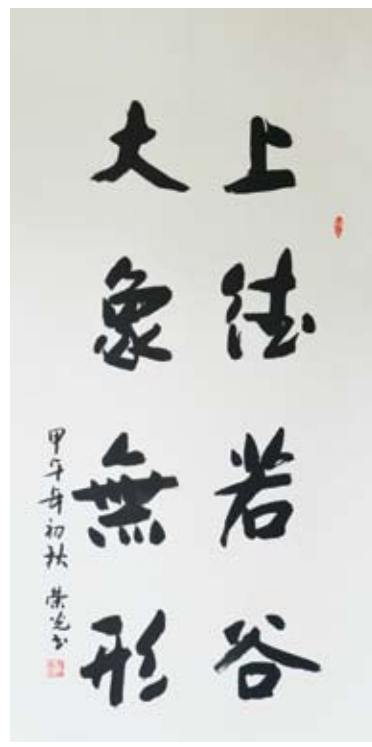 上德若谷
大象無形
甲午年初秋 荣光书